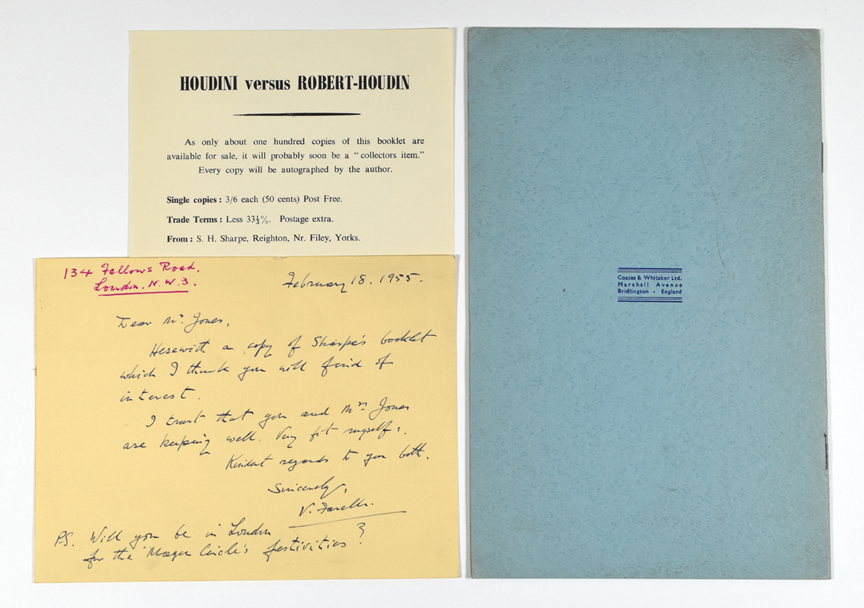 HOUDINI versus ROBERT-HOUDIN
As only about one hundred copies of this booklet are
available for sale, it will probably soon be a "collectors item."
Every copy will be autographed by the author.
Single copies : 3/6 each (50 cents) Post Free.
Trade Terms : Less 33⅓%. Postage extra.
From : S. H. Sharpe, Reighton, Nr. Filey, Yorks.
134 Fellows Road,
London. N.W.3.
February 18. 1955.
Dear Mr Jones,
Herewith a copy of Sharpe's booklet
which I think you will find of
interest.
I trust that you and Mrs Jones
are keeping well. Very fit myself.
Kindest regards to you both.
Sincerely,
V. Farelli.
PS. Will you be in London
for the Magic Circle's festivities?
Coates & Whitaker Ltd.
Marshall Avenue
Bridlington - England